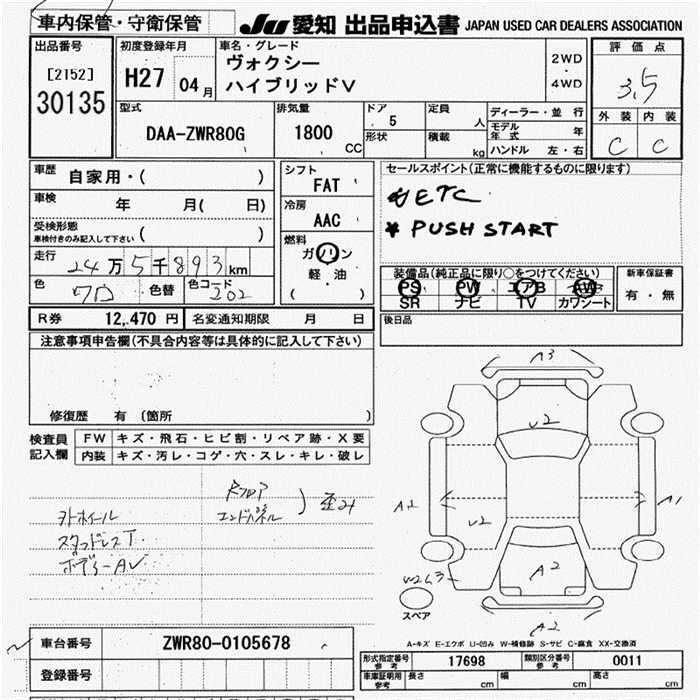 車内保管・守衛保管
JU 愛知 出品申込書 JAPAN USED CAR DEALERS ASSOCIATION
出品番号
[2152]
30135
初度登録年月
H27 04月
車名・グレード
ヴォクシー
ハイブリッドV
2WD
・
4WD
評価点
3.5
外装 内装
C C
型式
DAA-ZWR80G
排気量
1800
CC
ドア 5
形状
定員 人
積載 kg
ディーラー・並行
モデル年式 年
ハンドル 左・右
車歴 自家用・( )
車検 年 月( 日)
受検形態
車検付きのみ記入して下さい ( )
走行 24万5千893km
色 クロ 色替 色コード 202
シフト
FAT
冷房
AAC
燃料
ガソリン
軽・油
( )
セールスポイント(正常に機能するものに限ります)
ETC
* PUSH START
装備品(純正品に限り○をつけてください)
PS PW エアB AW
SR ナビ TV カワシート
新車保証書
有・無
後日品
R券 12,470円 名変通知期限 月 日
注意事項申告欄(不具合内容等は具体的に記入して下さい)
修復歴 有(箇所 )
検査員
記入欄
FW キズ・飛石・ヒビ割・リペア跡・X要
内装 キズ・汚レ・コゲ・穴・スレ・キレ・破レ
エンドパネル
歪み
A3
U2
A2
A1
U2
A2
W2 C3
スペア
A2
A-キズ E-エクボ U-凹み W-補修跡 S-サビ C-腐食 XX-交換済
車台番号 ZWR80-0105678
登録番号
形式指定番号 参考 17698 類別区分番号 参考 0011
車庫証明用 参考 長さ cm 幅 cm 高さ cm